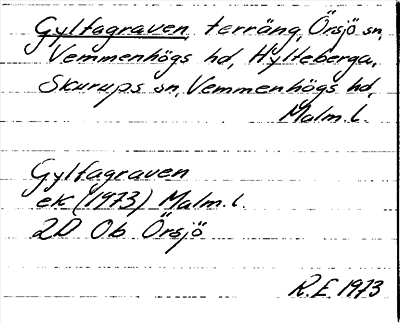 Gylfagraven, terräng, Örsjö sn,
Vemmenhögs hd, Hylteberga,
Skurups sn, Vemmenhögs hd,
Malm. l.
Gylfagraven
ek (1973) Malm. l.
2D 0b Örsjö
R.E. 1973